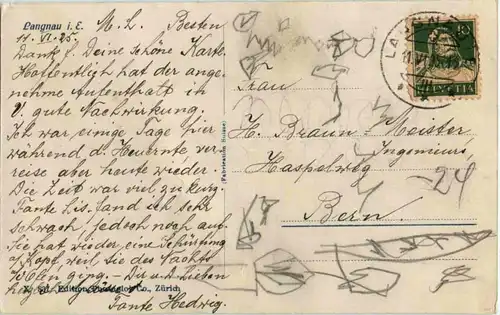 Langnau i. E.
11. VI. 25.
M. L. Besten
Dank f. Deine schöne Karte.
Hoffentlich hat der ange-
nehme Aufenthalt in
V. gute Nachwirkung.
Ich war einige Tage hier
während d. Heuernte, ver-
reise aber heute wieder.
Die Zeit war viel zu kurz.
Tante Lis. fand ich sehr
schwach, jedoch noch auf.
Sie hat wieder eine Schürfung
a/Kopf, weil sie des Nachts
ging. – Dir u. d. Lieben
Tante Hedwig.
Co., Zürich
Frau
H. Braun-Meister
Ingenieurs,
Haspelweg
-24
Bern.
LANGNAU
HELVETIA
10